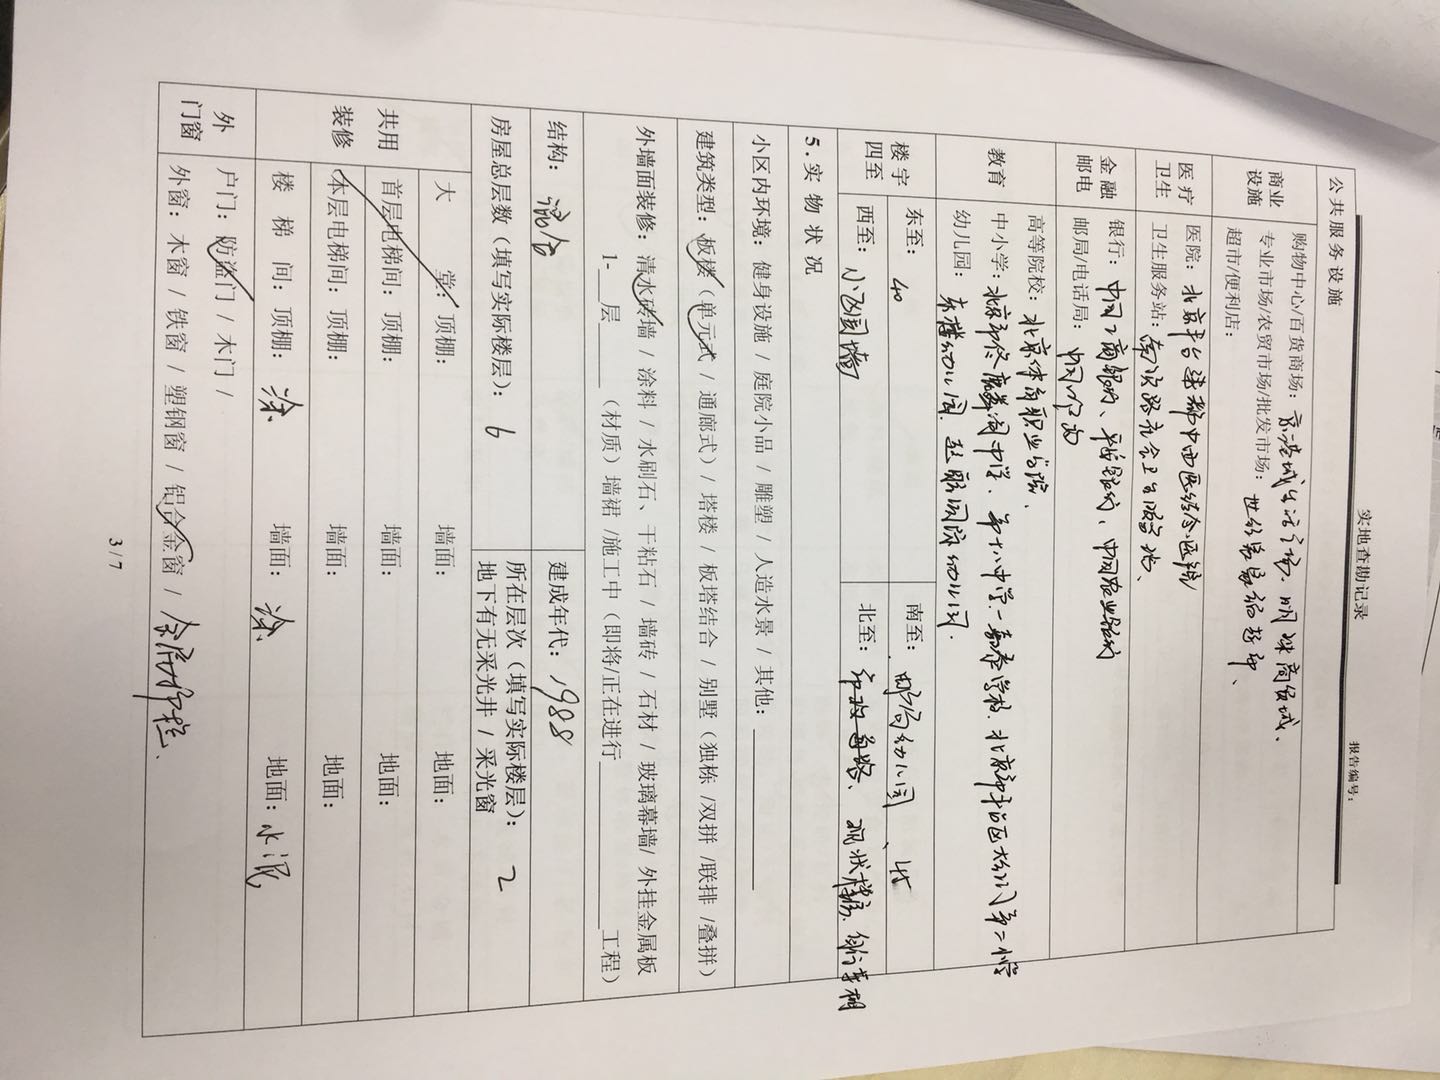 实地查勘记录
报告编号：
公共服务设施
商业设施
购物中心/百货商场：京港城生活广场、明珠商贸城、
专业市场/农贸市场/批发市场：世纪
超市/便利店：
医疗卫生
医院：北京丰台 中西医结合医院/
卫生服务站：
金融邮电
银行：中国工商银行、平安银行、中国农业银行
邮局/电话局：中国
教育
高等院校：北京体育职业学院、
中小学：北京市佟麟阁中学、第十八中学、 学校、北京市丰台区 第二小学
幼儿园：东 幼儿园、 国际幼儿园、
楼宇四至
东至：40
南至： 幼儿园、45
西至：小区围墙
北至： 现状
5．实物状况
小区内环境：健身设施 / 庭院小品 / 雕塑 / 人造水景 / 其他：
建筑类型：板楼（单元式 / 通廊式）/ 塔楼 / 板塔结合 / 别墅（独栋 /双拼 /联排 /叠拼）
外墙面装修：清水砖墙 / 涂料 / 水刷石、干粘石 / 墙砖 / 石材 / 玻璃幕墙/ 外挂金属板
1-___层___（材质）墙裙 /施工中（即将/正在进行___工程）
结构：混合
建成年代：1988
房屋总层数（填写实际楼层）：6
所在层次（填写实际楼层）：2
地下有无采光井 / 采光窗
共用装修
大 堂：顶棚： 墙面： 地面：
首层电梯间：顶棚： 墙面： 地面：
本层电梯间：顶棚： 墙面： 地面：
楼 梯 间：顶棚：涂 墙面：涂 地面：水泥
外门窗
户门：防盗门 / 木门 /
外窗：木窗 / 铁窗 / 塑钢窗 / 铝合金窗 /
3 / 7